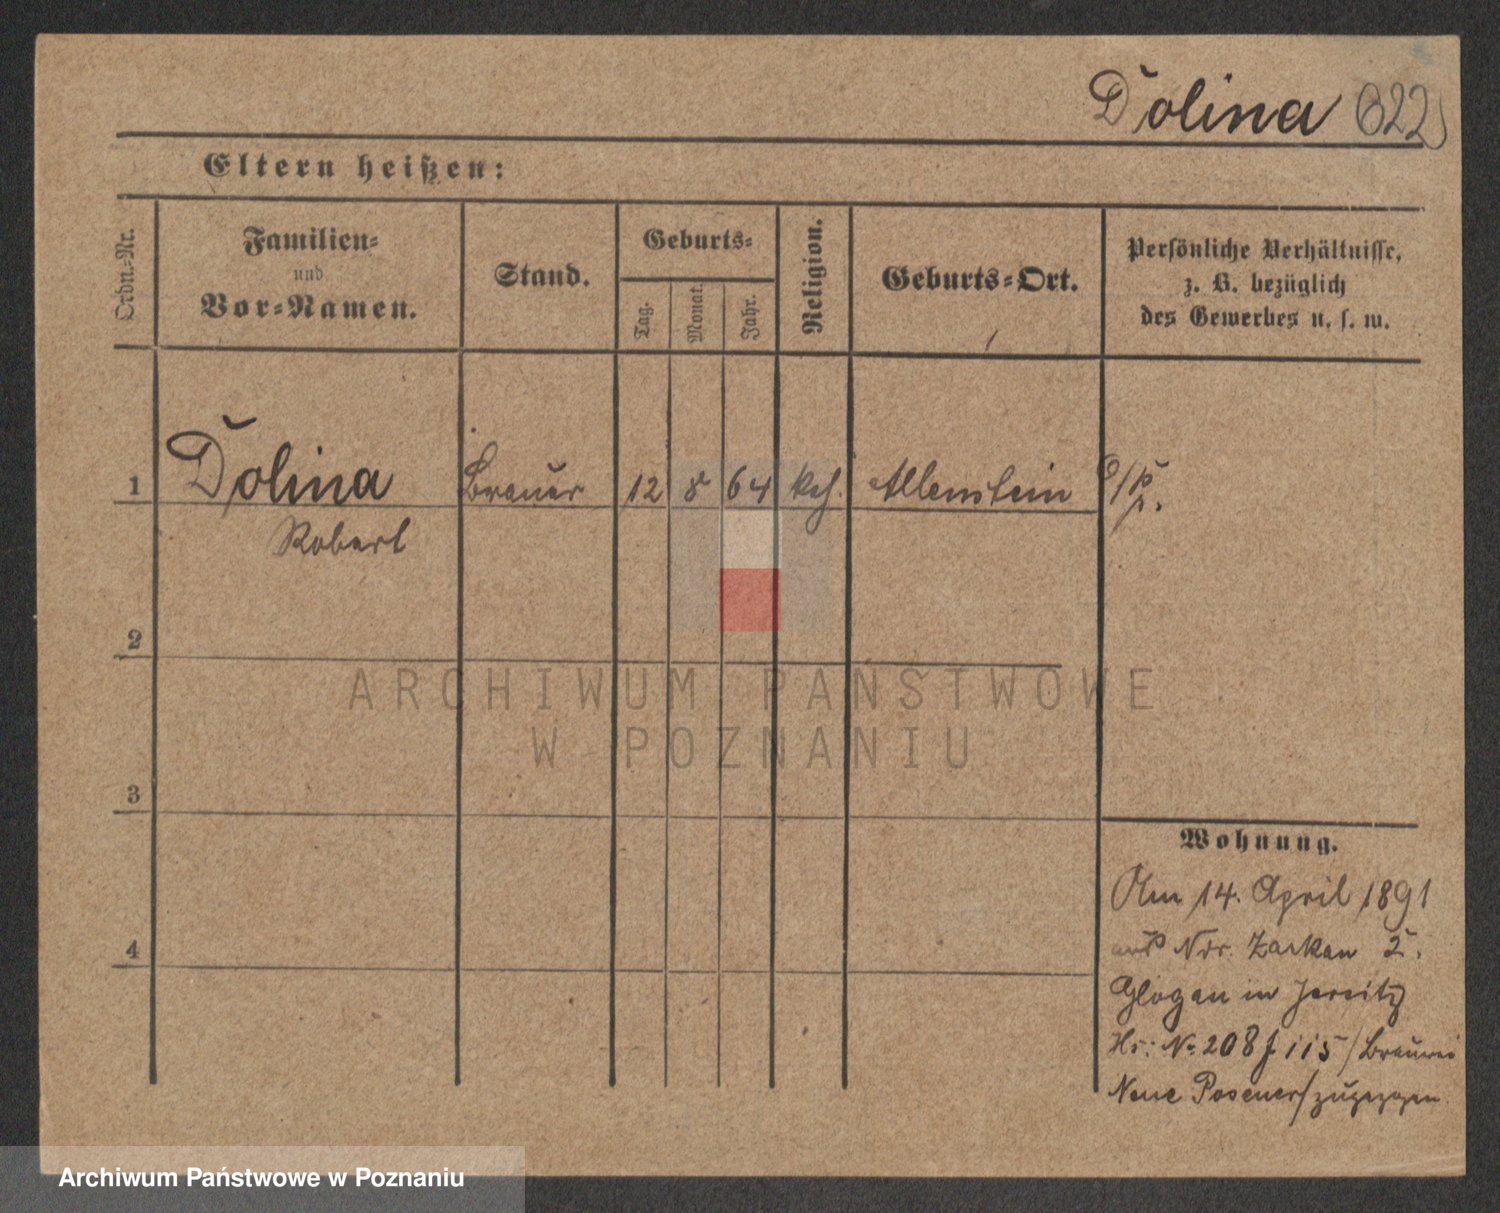 Dolina 622
Eltern heißen:
Ordn.-Nr.
Familien-
und
Vor-Namen.
Stand.
Geburts-
Tag.
Monat.
Jahr.
Religion.
Geburts-Ort.
Persönliche Verhältnisse,
z. B. bezüglich
des Gewerbes u. s. w.
1 Dolina Brauer 12 8 64 kth. Allenstein
Robert
2
3
4
Wohnung.
Am 14. April 1891
aus Ndr. Zarkau
Glogau in Jersitz
Hs: No 208 f 115 / Brauerei
Neue Posener / zugezogen
ARCHIWUM PAŃSTWOWE
W POZNANIU
Archiwum Państwowe w Poznaniu